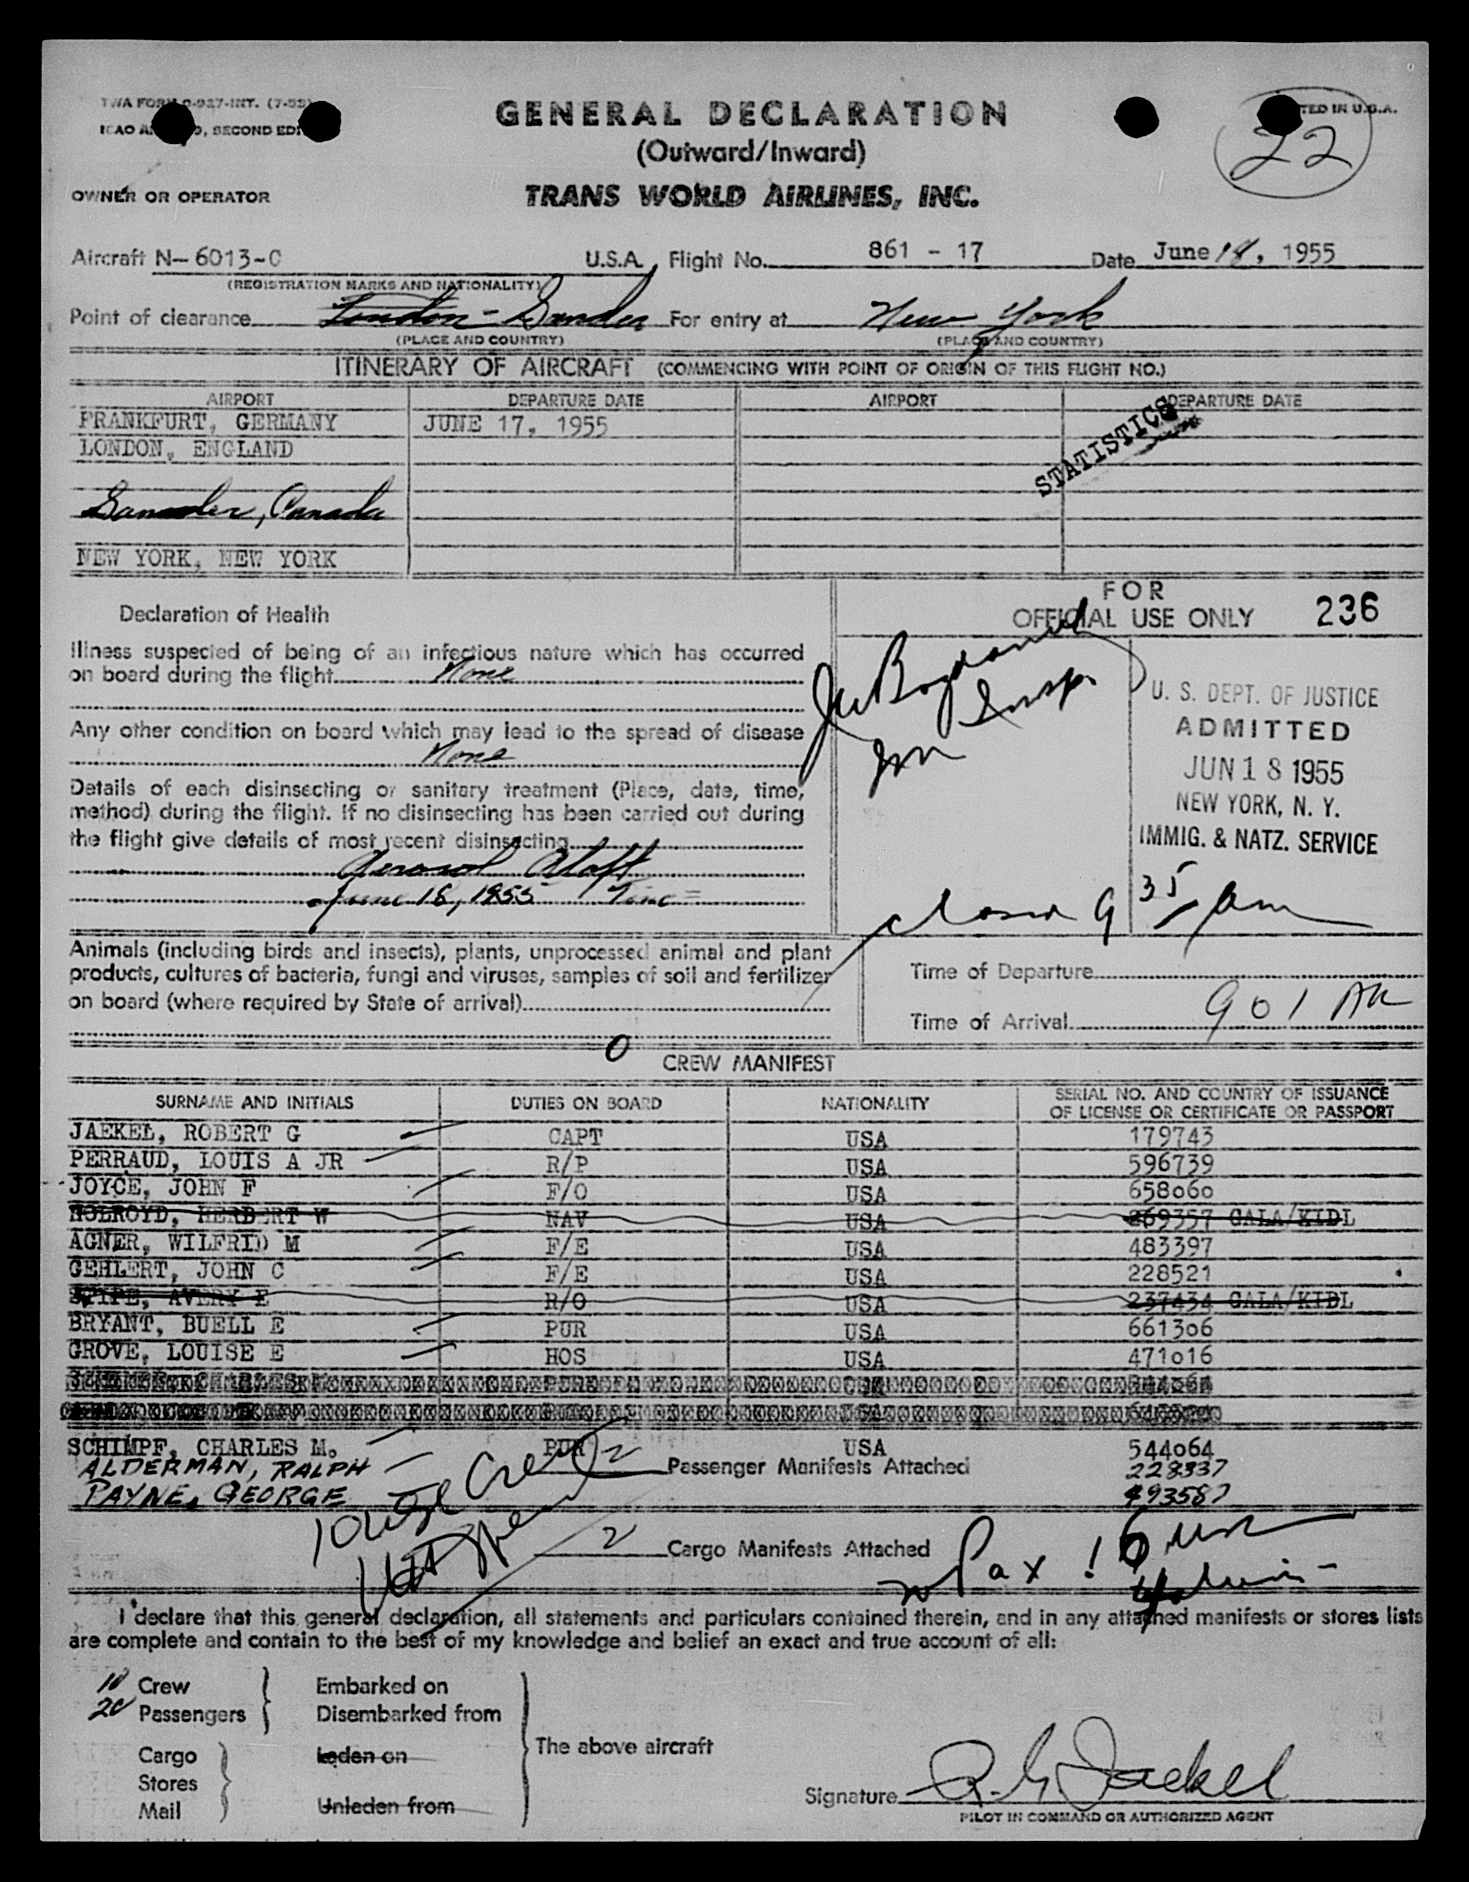 TWA FORM 0-927-INT. (7-52)
SECOND EDI
GENERAL DECLARATION
(Outward/Inward)
TED IN U.S.A.
22
OWNER OR OPERATOR
TRANS WORLD AIRLINES, INC.
Aircraft N- 6013-C U.S.A. Flight No. 861 - 17 Date June 18, 1955
(REGISTRATION MARKS AND NATIONALITY)
Point of clearance London - Gander For entry at New York
(PLACE AND COUNTRY) (PLACE AND COUNTRY)
ITINERARY OF AIRCRAFT (COMMENCING WITH POINT OF ORIGIN OF THIS FLIGHT NO.)
AIRPORT DEPARTURE DATE AIRPORT DEPARTURE DATE
FRANKFURT, GERMANY JUNE 17, 1955
LONDON, ENGLAND
STATISTICS
Gander, Canada
NEW YORK, NEW YORK
FOR
OFFICIAL USE ONLY 236
Declaration of Health
Illness suspected of being of an infectious nature which has occurred
on board during the flight None
Any other condition on board which may lead to the spread of disease
None
Details of each disinsecting or sanitary treatment (Place, date, time,
method) during the flight. If no disinsecting has been carried out during
the flight give details of most recent disinsecting
Aerosol Aloft
June 18, 1955 Time =
Insp
Imm
U. S. DEPT. OF JUSTICE
ADMITTED
JUN 18 1955
NEW YORK, N. Y.
IMMIG. & NATZ. SERVICE
closed 9 35/am
Animals (including birds and insects), plants, unprocessed animal and plant
products, cultures of bacteria, fungi and viruses, samples of soil and fertilizer
on board (where required by State of arrival)
0
Time of Departure
Time of Arrival 901 AM
CREW MANIFEST
SURNAME AND INITIALS DUTIES ON BOARD NATIONALITY SERIAL NO. AND COUNTRY OF ISSUANCE
OF LICENSE OR CERTIFICATE OR PASSPORT
JAEKEL, ROBERT G CAPT USA 179743
PERRAUD, LOUIS A JR R/P USA 596739
JOYCE, JOHN F F/O USA 658060
HOLROYD, HERBERT W NAV USA 269357 GALA/KIDL
AGNER, WILFRID M F/E USA 483397
GEHLERT, JOHN C F/E USA 228521
AVERY E R/O USA 237434 GALA/KIDL
BRYANT, BUELL E PUR USA 661306
GROVE, LOUISE E HOS USA 471016
SCHIMPF, CHARLES M. PUR USA 544064
ALDERMAN, RALPH 228337
PAYNE, GEORGE 493587
2 Passenger Manifests Attached
10 Crew
2 Cargo Manifests Attached
Pax
I declare that this general declaration, all statements and particulars contained therein, and in any attached manifests or stores lists
are complete and contain to the best of my knowledge and belief an exact and true account of all:
10 Crew
20 Passengers
Embarked on
Disembarked from
Cargo
Stores
Mail
Laden on
Unladen from
The above aircraft
Signature R. G. Jaekel
PILOT IN COMMAND OR AUTHORIZED AGENT